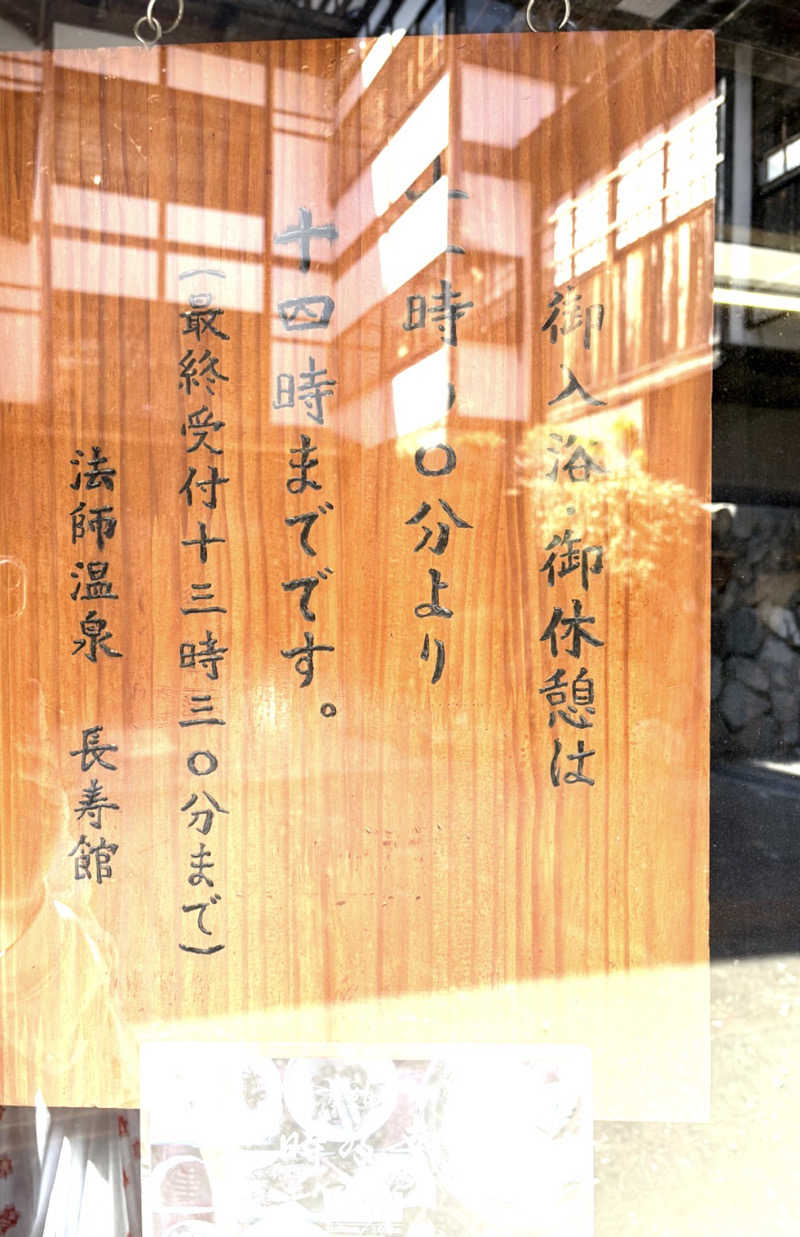 御入浴・御休憩は
時 〇分より
十四時までです。
(最終受付十三時三〇分まで)
法師温泉 長寿館